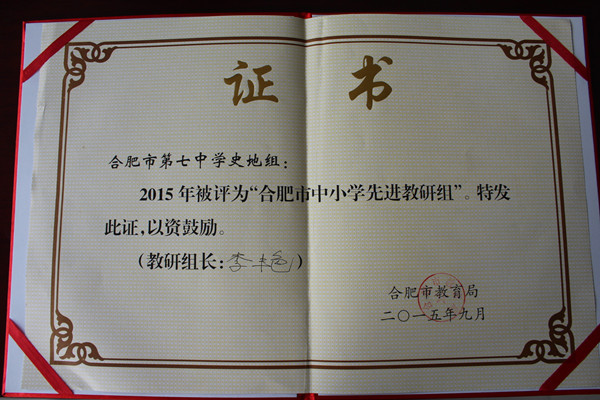 证书
合肥市第七中学史地组：
2015年被评为“合肥市中小学先进教研组”。特发
此证，以资鼓励。
（教研组长：李艳）
合肥市教育局
二〇一五年九月